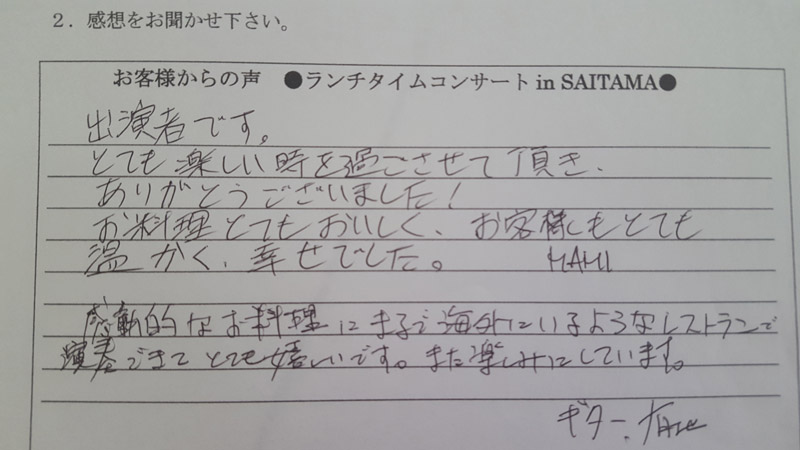 2．感想をお聞かせ下さい。
お客様からの声 ●ランチタイムコンサート in SAITAMA●
出演者です。
とても楽しい時を過ごさせて頂き、
ありがとうございました！
お料理とてもおいしく、お客様もとても
温かく、幸せでした。 MAMI
感動的なお料理にまるで海外にいるようなレストランで
演奏できてとても嬉しいです。また楽しみにしています。
ギター.